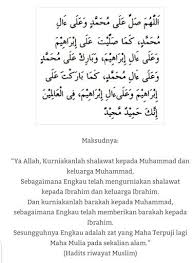 اَللّٰهُمَّ صَلِّ عَلَى مُحَمَّدٍ وَعَلَى ءَالِ
مُحَمَّدٍ، كَمَا صَلَّيْتَ عَلَى إِبْرَاهِيْمَ
وَعَلَى ءَالِ إِبْرَاهِيْمَ، وَبَارِكْ عَلَى مُحَمَّدٍ
وَعَلَى ءَالِ مُحَمَّدٍ، كَمَا بَارَكْتَ عَلَى
إِبْرَاهِيْمَ وَعَلَى ءَالِ إِبْرَاهِيْمَ، فِي الْعَالَمِيْنَ
إِنَّكَ حَمِيْدٌ مَّجِيْدٌ
Maksudnya:
"Ya Allah, Kurniakanlah shalawat kepada Muhammad dan
keluarga Muhammad,
Sebagaimana Engkau telah mengurniakan shalawat
kepada Ibrahim dan keluarga Ibrahim.
Dan kurniakanlah barakah kepada Muhammad,
sebagaimana Engkau telah memberikan barakah kepada
Ibrahim.
Sesungguhnya Engkau adalah zat yang Maha Terpuji lagi
Maha Mulia pada sekalian alam."
(Hadits riwayat Muslim)